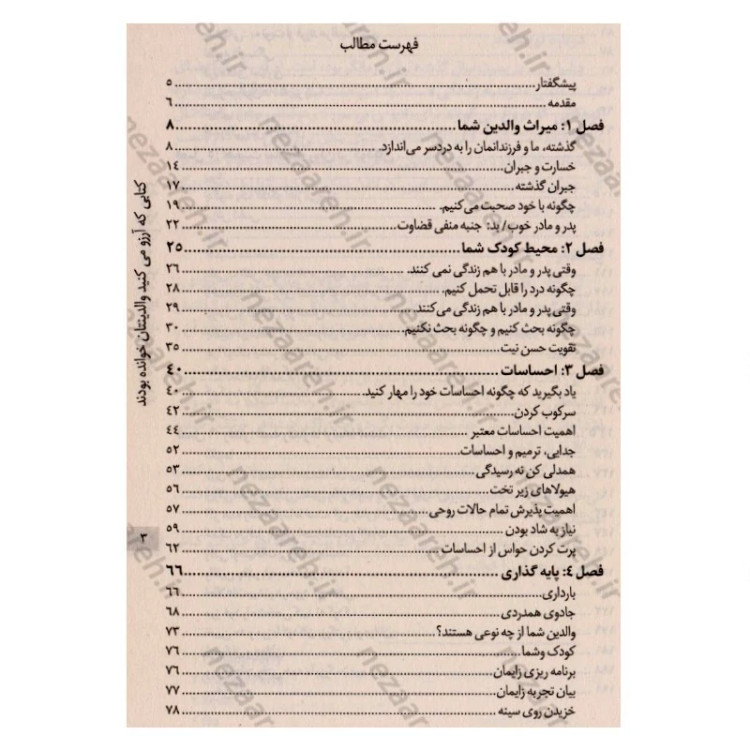 فهرست مطالب
پیشگفتار ۵
مقدمه ۶
فصل ۱: میراث والدین شما ۸
گذشته، ما و فرزندانمان را به دردسر می‌اندازد. ۸
خسارت و جبران ۱۴
جبران گذشته ۱۷
چگونه با خود صحبت می‌کنیم. ۱۹
پدر و مادر خوب/ بد: جنبه منفی قضاوت ۲۲
فصل ۲: محیط کودک شما ۲۵
وقتی پدر و مادر با هم زندگی نمی کنند. ۲۶
چگونه درد را قابل تحمل کنیم. ۲۸
وقتی پدر و مادر با هم زندگی می‌کنند. ۲۹
چگونه بحث کنیم و چگونه بحث نکنیم ۳۰
تقویت حسن نیت ۳۵
فصل ۳: احساسات ۴۰
یاد بگیرید که چگونه احساسات خود را مهار کنید. ۴۰
سرکوب کردن ۴۲
اهمیت احساسات معتبر ۴۴
جدایی، ترمیم و احساسات ۵۲
همدلی کن نه رسیدگی ۵۳
هیولاهای زیر تخت ۵۶
اهمیت پذیرش تمام حالات روحی ۵۷
نیاز به شاد بودن ۵۹
پرت کردن حواس از احساسات ۶۲
فصل ۴: پایه گذاری ۶۶
بارداری ۶۶
جادوی همدردی ۶۸
والدین شما از چه نوعی هستند؟ ۷۳
کودک وشما ۷۶
برنامه ریزی زایمان ۷۶
بیان تجربه زایمان ۷۷
خزیدن روی سینه ۷۸
کتابی که آرزو می کنید والدینتان خوانده بودند
۳
nezaareh.ir